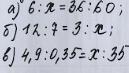 а) 6 : x = 36 : 60 ;
б) 12 : 7 = 3 : x ;
в) 4,9 : 0,35 = x : 35